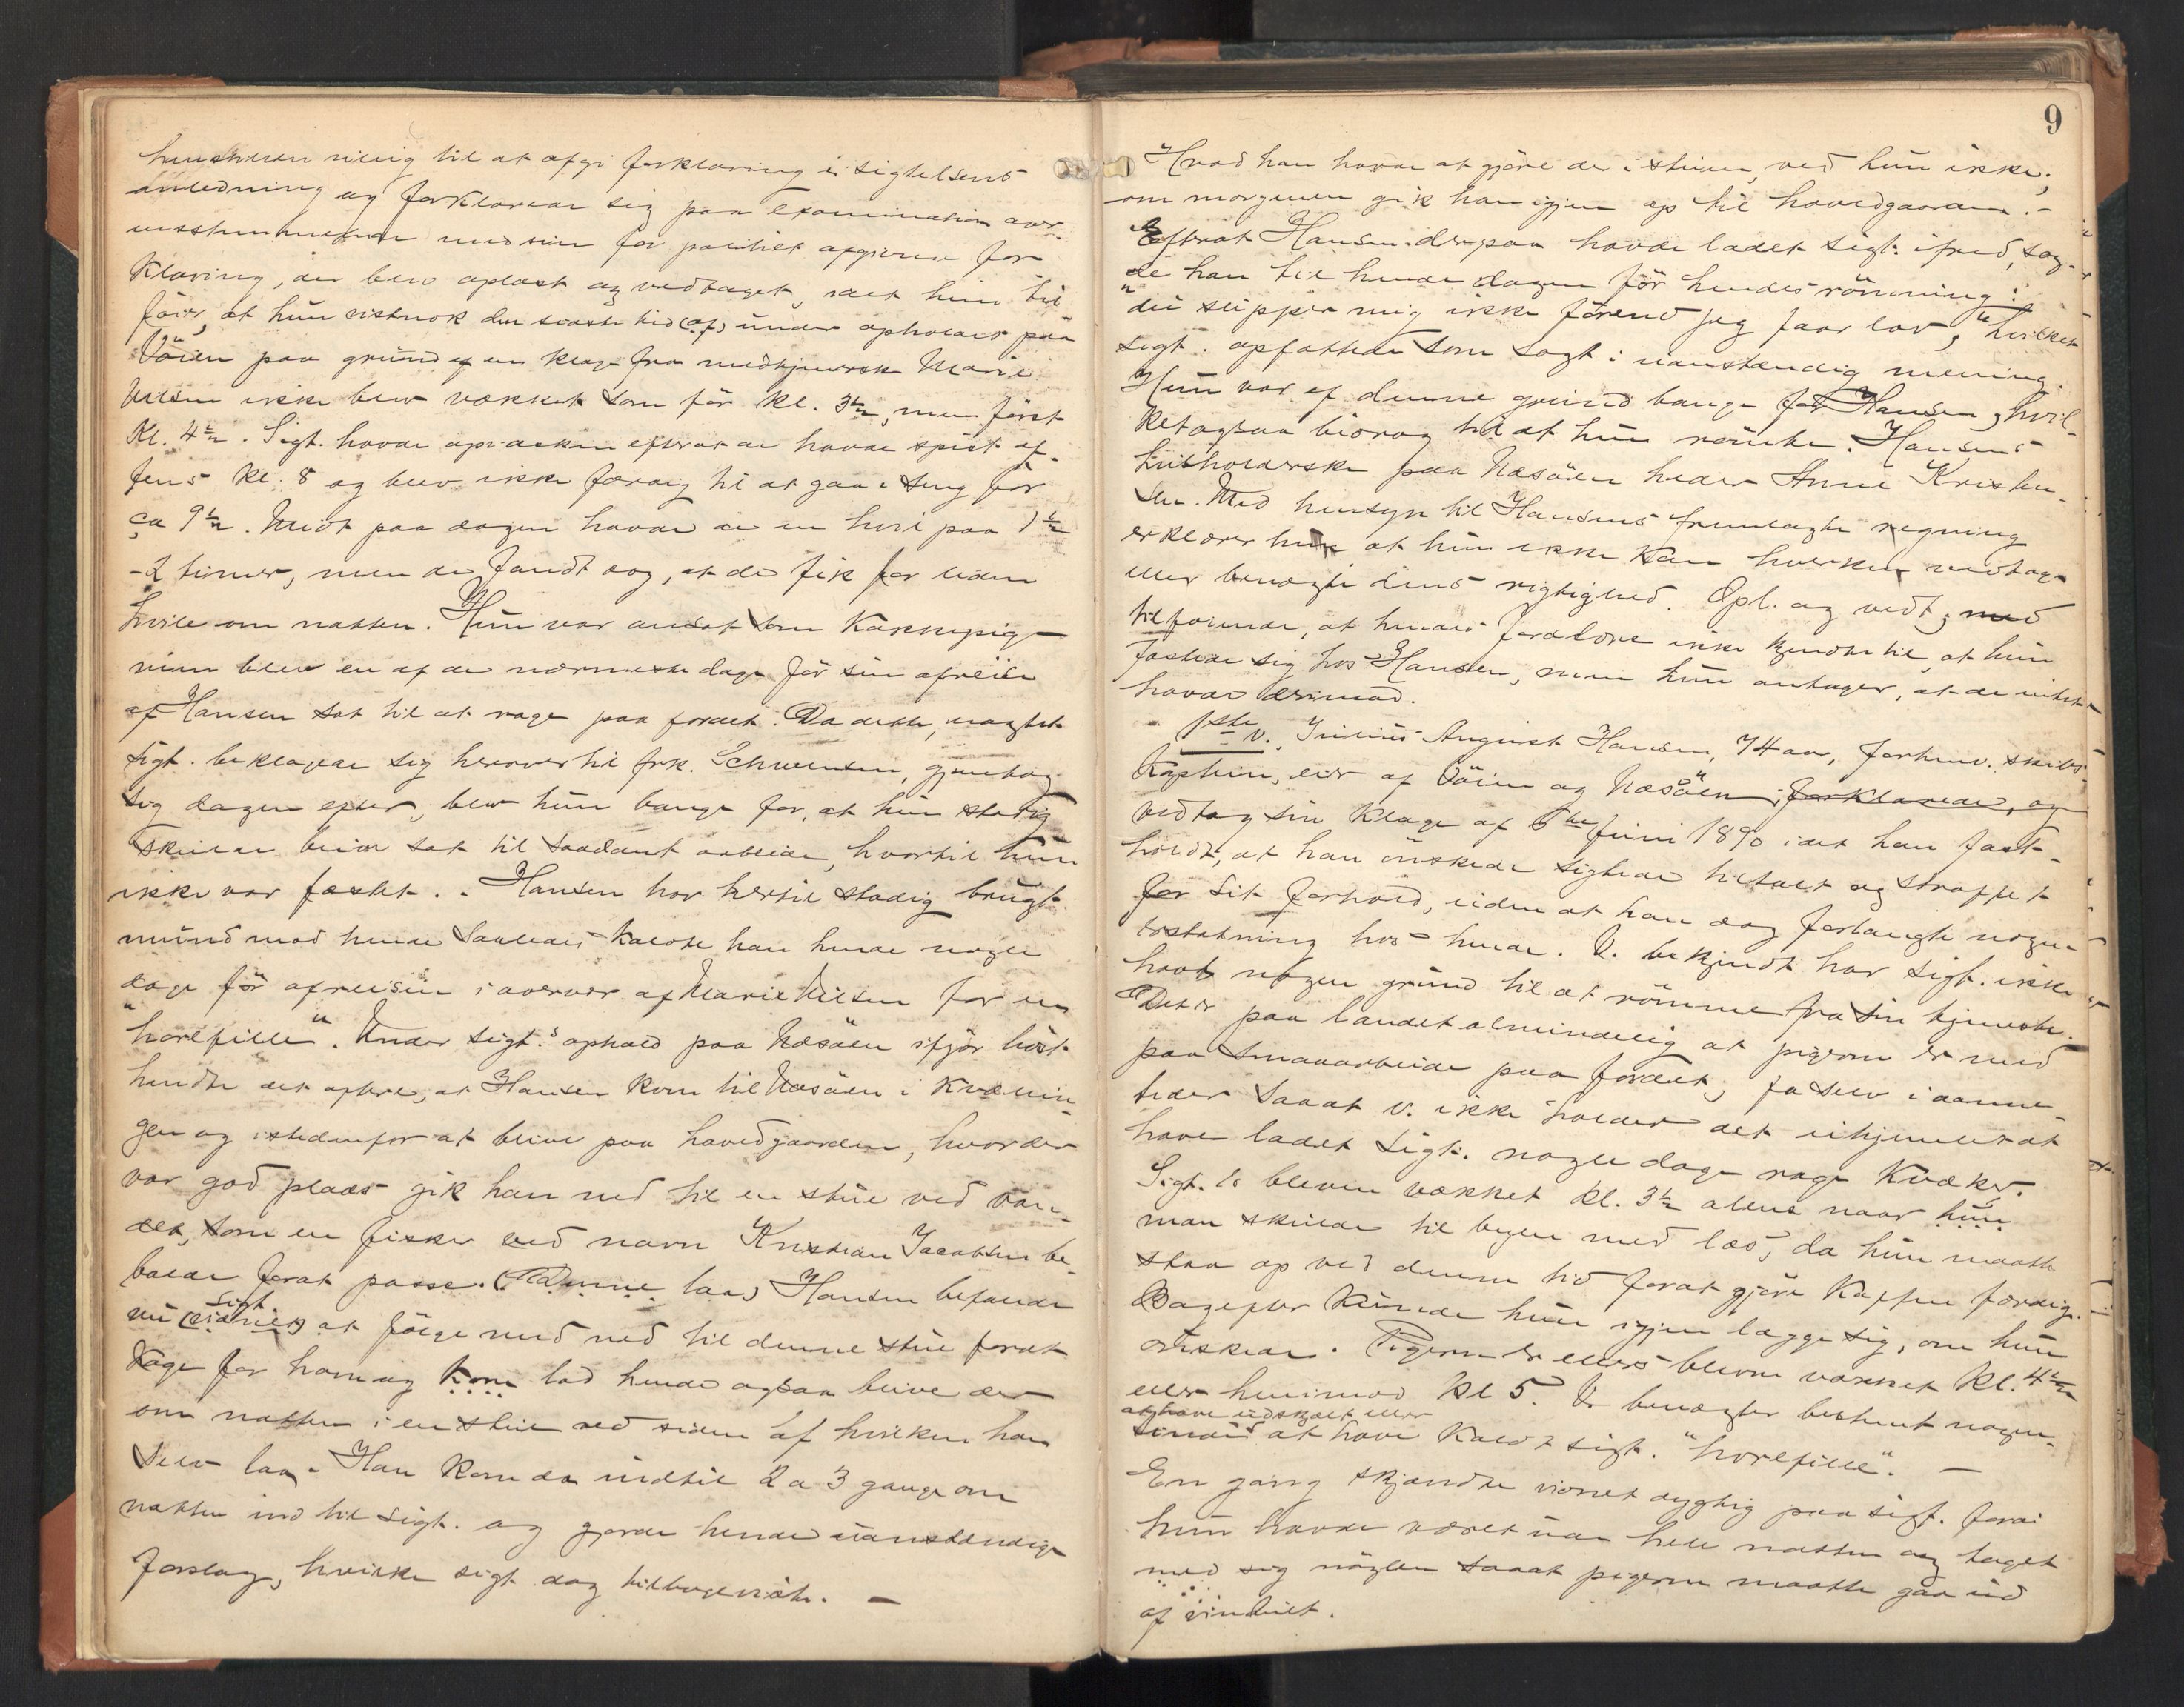 hendes villig til at afgi forklaring i sigtelsens
anledning og forklarede sig paa examination over-
ensstemmende med sin for politiet afgivne for-
klaring, der blev oplæst og vedtaget, idet hun til-
föier, at hun vistnok den sidste tid (af) under opholdet paa
Vöien paa grund af en klage fra medtjenerske Marie
Nilsen ikke blev vækket som för kl. 3½, men först
kl. 4½. Sigt. havde opvasken efterat de havde spist af-
tens kl. 8 og blev ikke færdig til at gaa i seng för
ca 9½. Midt paa dagen havde de en hvil paa 1½
-2 timer, men de fandt dog, at de fik for liden
hvile om natten. Hun var ansat som kokkepige
men blev en af de nærmeste dage för sin afreise
af Hansen sat til at rage paa jordet. Da dette, uagtet
sigt. beklagede sig herover til frk. Schwensen, gjentog
sig dagen efter, blev hun bange for, at hun stadig
skulde blive sat til saadant arbeide, hvortil hun
ikke var fæstet. - Hansen har hertil stadig brugt
mund mod hende saaledes kaldte han hende nogle
dage för afreisen i overvær af Marie Nilsen for en
"horefille". Under sigt.s ophold paa Næsöen ifjor höst
hendte det oftere, at Hansen kom til Næsöen i kvællin-
gen og istedenfor at blive paa hovedgaarden, hvor der
var god plads gik han ned til en stue ved van-
det, som en fisker ved navn Kristian Jacobsen be-
boede forat passe. (Denne laa) Hansen befalede
sigt.
nu (vidnet) at fölge med ned til denne stue forat
koge for ham og kom lod hende ogsaa blive der
om natten i en stue ved siden af hvilken han
selv laa. Han kom da indtil 2 a 3 gange om
natten ind til sigt. og gjorde hende uanstændige
forslag, hvilke sigt. dog tilbageviste. -
9
Hvad han havde at gjöre der i stuen, ved hun ikke;
om morgenen gik han igjen op til hovedgaarden. -
Efterat Hansen derpaa havde ladet sigt. i fred, sag-
de han til hende dagen för hendes römning:
"du slipper mig ikke förend jeg faar lov", hvilket
sigt. opfattede som sagt i uanstændig mening.
Hun var af denne grund bange for Hansen, hvil-
ket ogsaa bidrog til at hun römte. Hansens
husholderske paa Næsöen heder Anne Kristen-
sen. Med hensyn til Hansens fremlagte regning
erklærer hun at hun ikke kan hverken vedtage
eller benægte dens rigtighed. Opl. og vedt. med
tilföiende, at hendes forældre ikke kjendte til, at hun
fæstede sig hos Hansen, men hun antager, at de intet
havde derimod.
1ste v. Julius August Hansen, 74 aar, forhenv. skibs-
kaptein, eier af Vöien og Næsöen, forklarede, og
vedtog sin klage af 5te Juni 1890 idet han fast-
holdt, at han önskede sigtede tiltalt og straffet
for sit forhold, uden at han dog forlangte nogen
erstatning hos hende. V. bekjendt har sigt. ikke
havt nogen grund til at römme fra sin tjeneste.
Det er paa landet almindelig at pigerne er med
paa smaaarbeide paa jordet, ja selv i aanne-
tider saaat v. ikke holder det utjenligt at
have ladet sigt. nogle dage rage kvæker.
Sigt. er bleven vækket kl. 3½ alene naar hun
man skulde til byen med læs, da hun maatte
staa op ved denne tid forat gjöre kaffen færdig.
Bagefter kunde hun igjen lægge sig, om hun
önskede. Pigerne er ellers blevne vækket kl. 4½
eller henimod kl 5. V. benægter bestemt nogen-
at have udskjælt eller
sinde at have kaldt sigt. "horefille". -
En gang skjændte vidnet dygtig paa sigt. fordi
hun havde været ude hele natten og taget
med sig nöglen saaat pigerne maatte gaa ud
af vinduet.